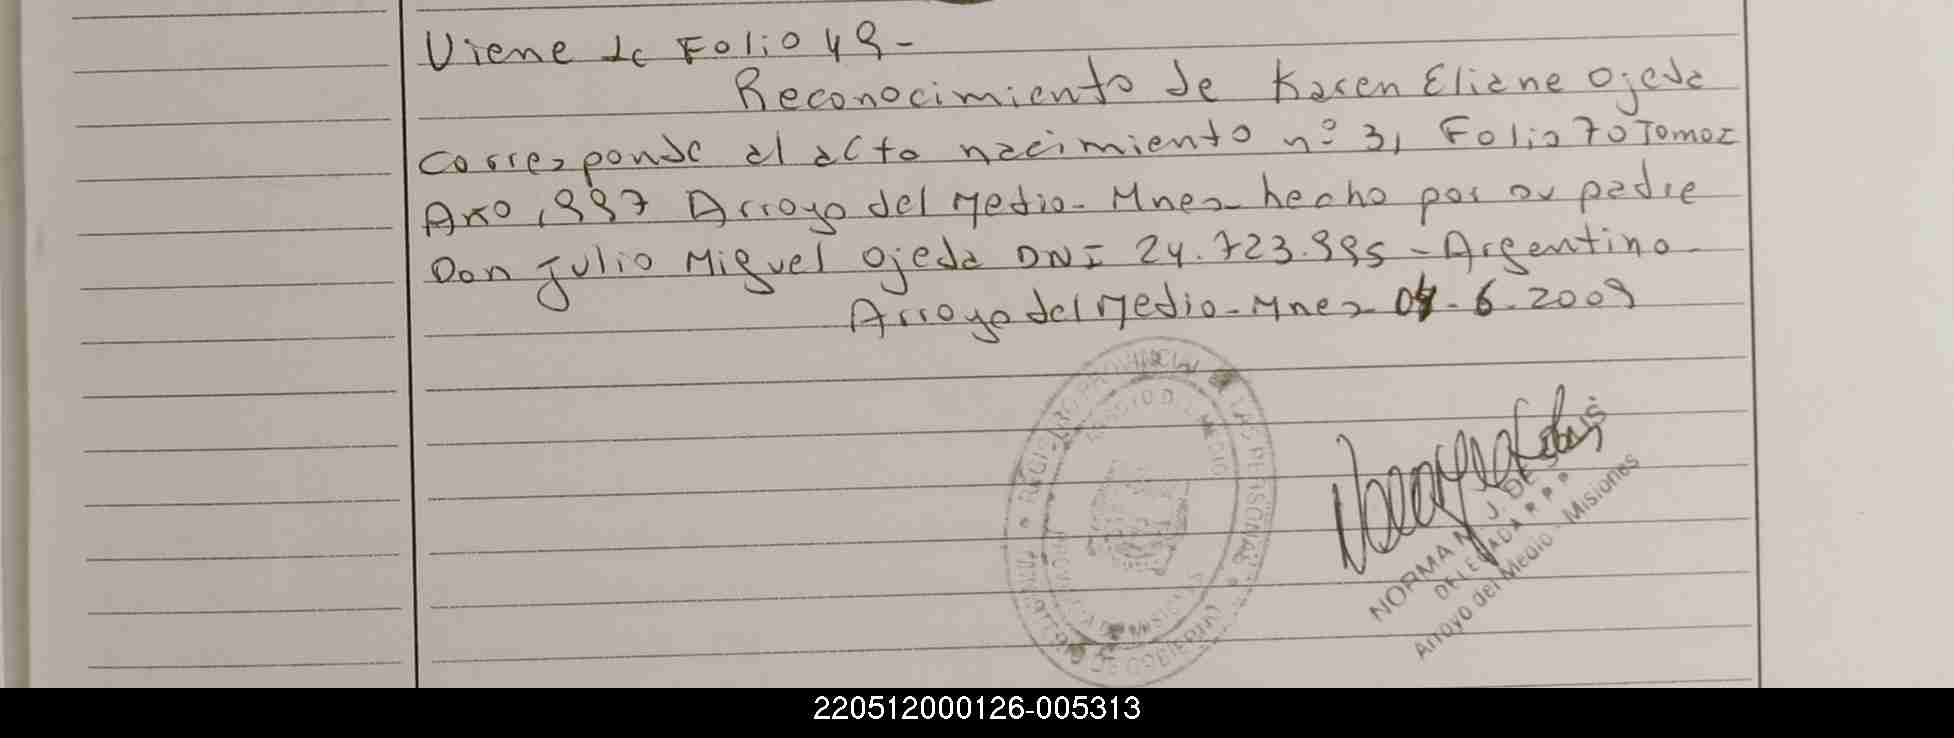 Viene de Folio 49-
Reconocimiento de Karen Eliane Ojeda
Corresponde al acto nacimiento nº 31 Folio 70 Tomo I
Año 1997 Arroyo del Medio- Mnes- hecho por su padre
Don Julio Miguel Ojeda DNI 24.723.995 - Argentino-
Arroyo del Medio- Mnes 04-6-2009
REGISTRO PROVINCIAL DE LAS PERSONAS
ARROYO DEL MEDIO
PROVINCIA DE MISIONES
NORMA J. DE
DELEGADA R.P.P.
Arroyo del Medio - Misiones
220512000126-005313